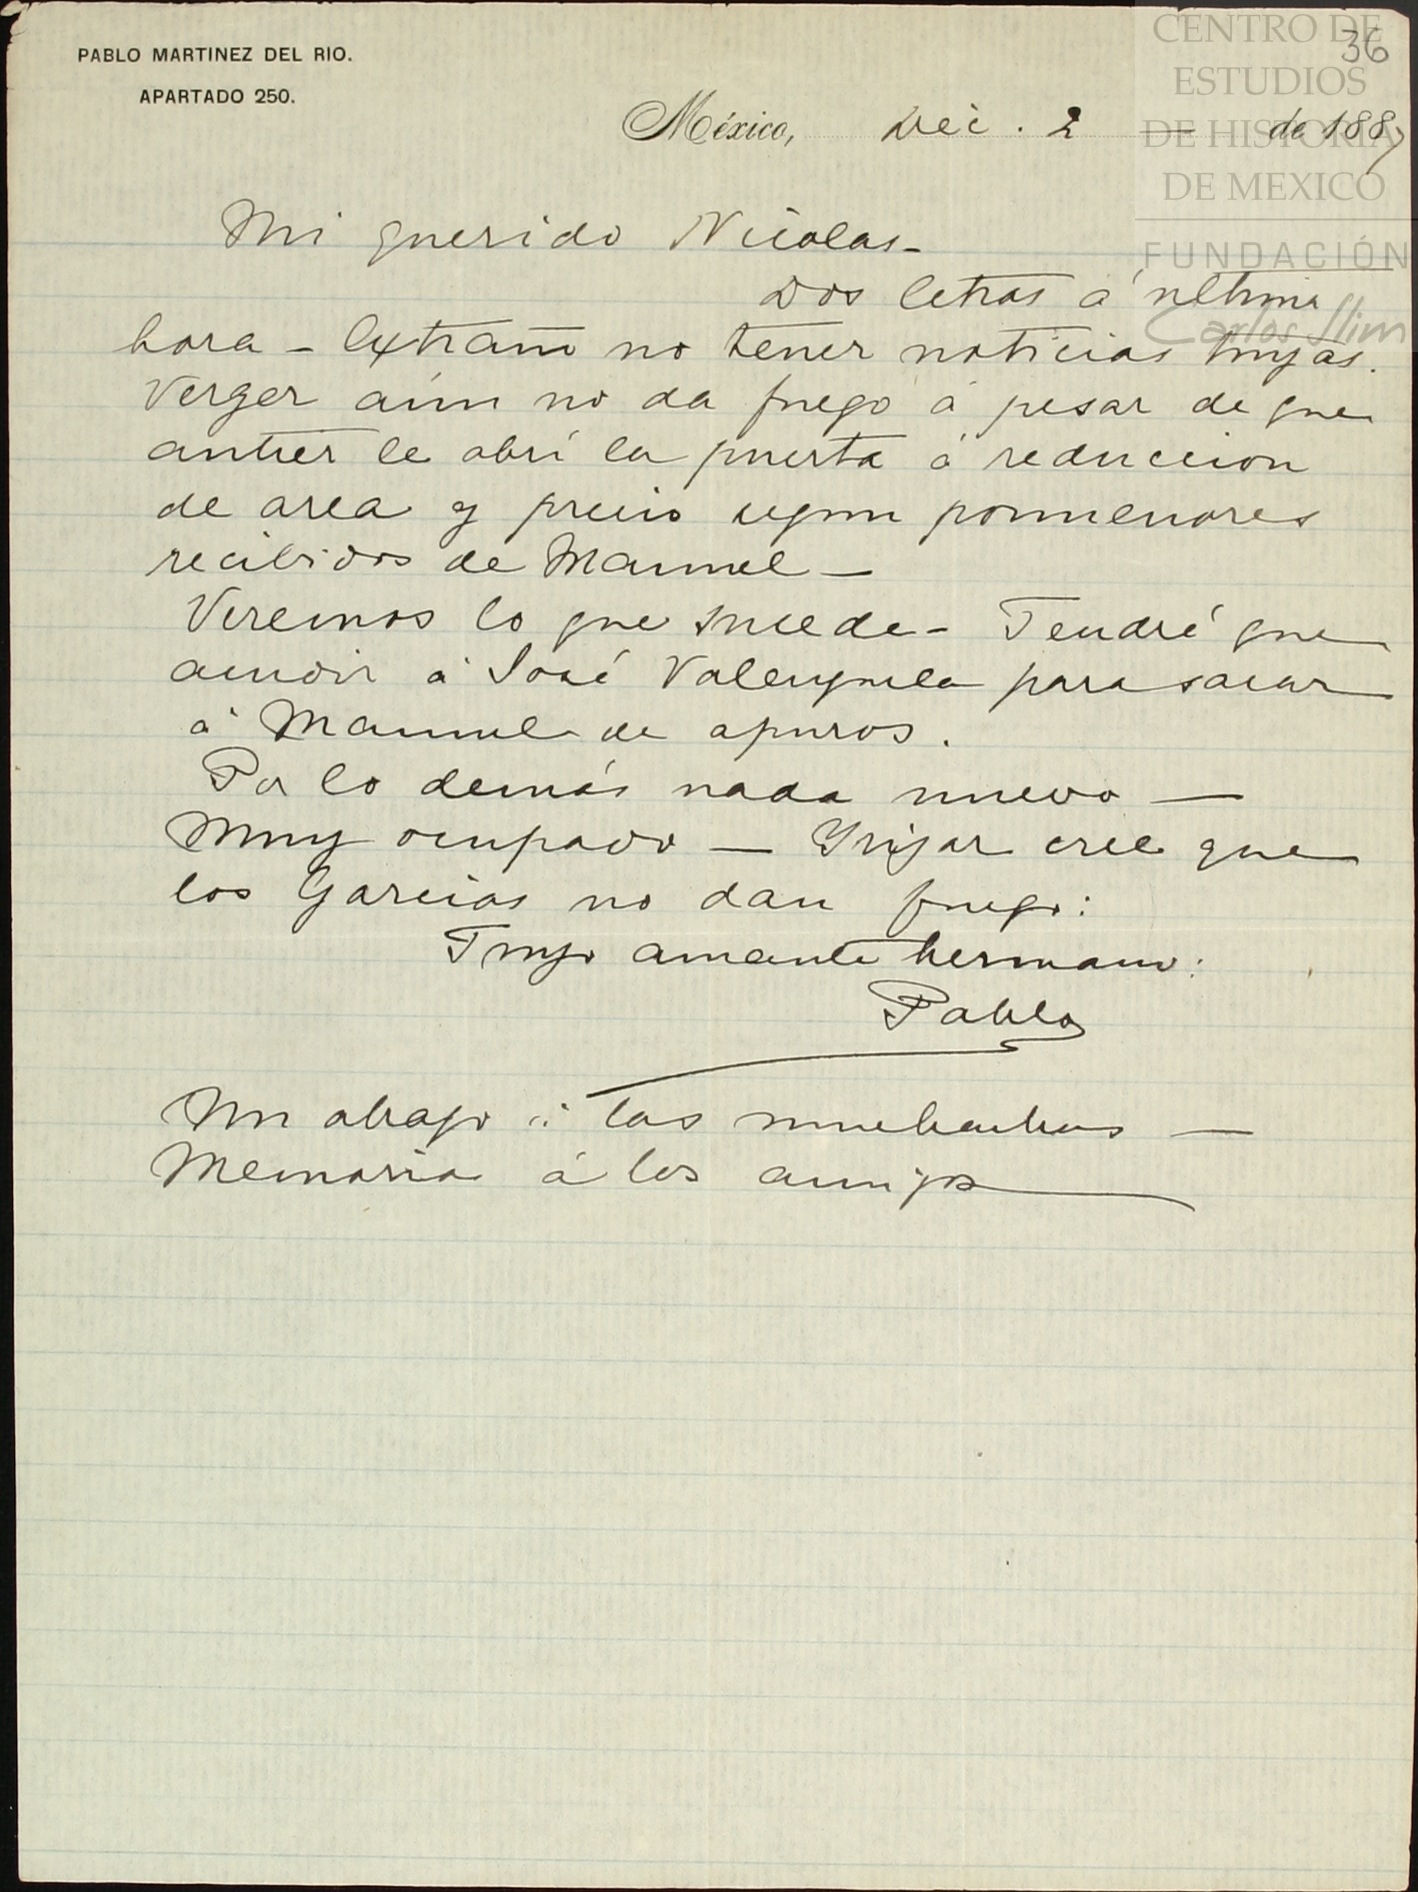 36
PABLO MARTINEZ DEL RIO.
APARTADO 250.
México, Dec. 2 — de 1887
CENTRO DE
ESTUDIOS
DE HISTORIA
DE MEXICO
FUNDACIÓN
Carlos Slim
Mi querido Nicolas -
Dos letras á ultima
hora - Extraño no tener noticias tuyas.
Verger aún no da fuego á pesar de que
antier le abrí la puerta á reduccion
de area y precio segun pormenores
recibidos de Manuel -
Veremos lo que sucede - Tendré que
acudir á José Valenzuela para sacar
á Manuel de apuros.
Por lo demás nada nuevo —
Muy ocupado — Yrizar cree que
los Garcias no dan fuego:
Tuyo amante hermano:
Pablo
Un abrazo á las muchachas —
Memorias á los amigos